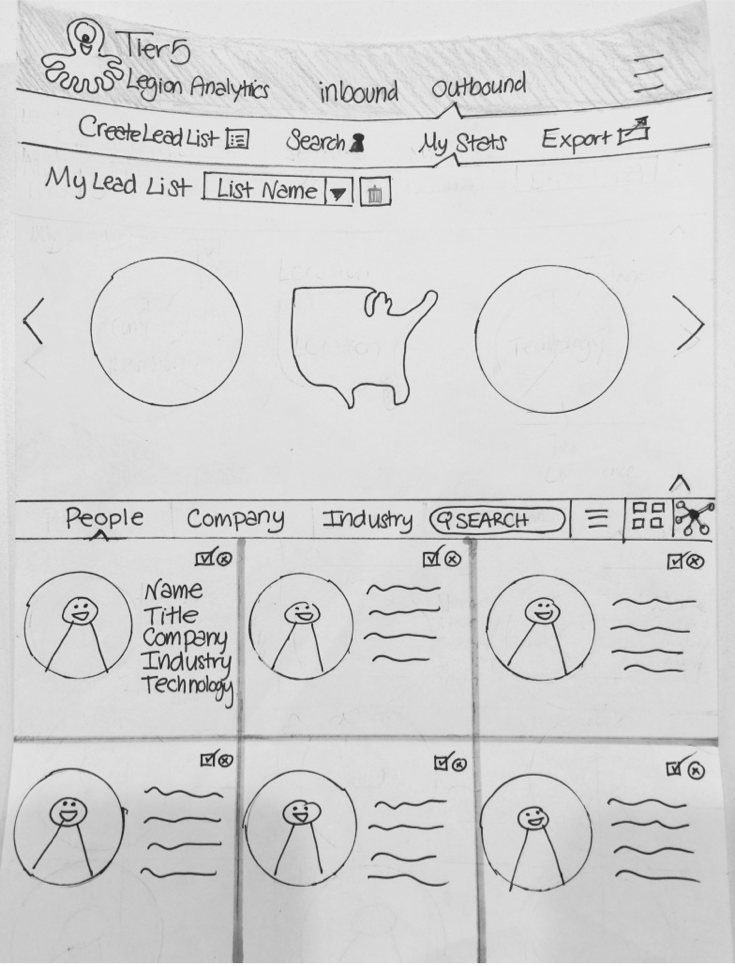 Tier5
Legion Analytics inbound outbound
Create Lead List Search My Stats Export
My Lead List List Name
People Company Industry SEARCH
Name
Title
Company
Industry
Technology